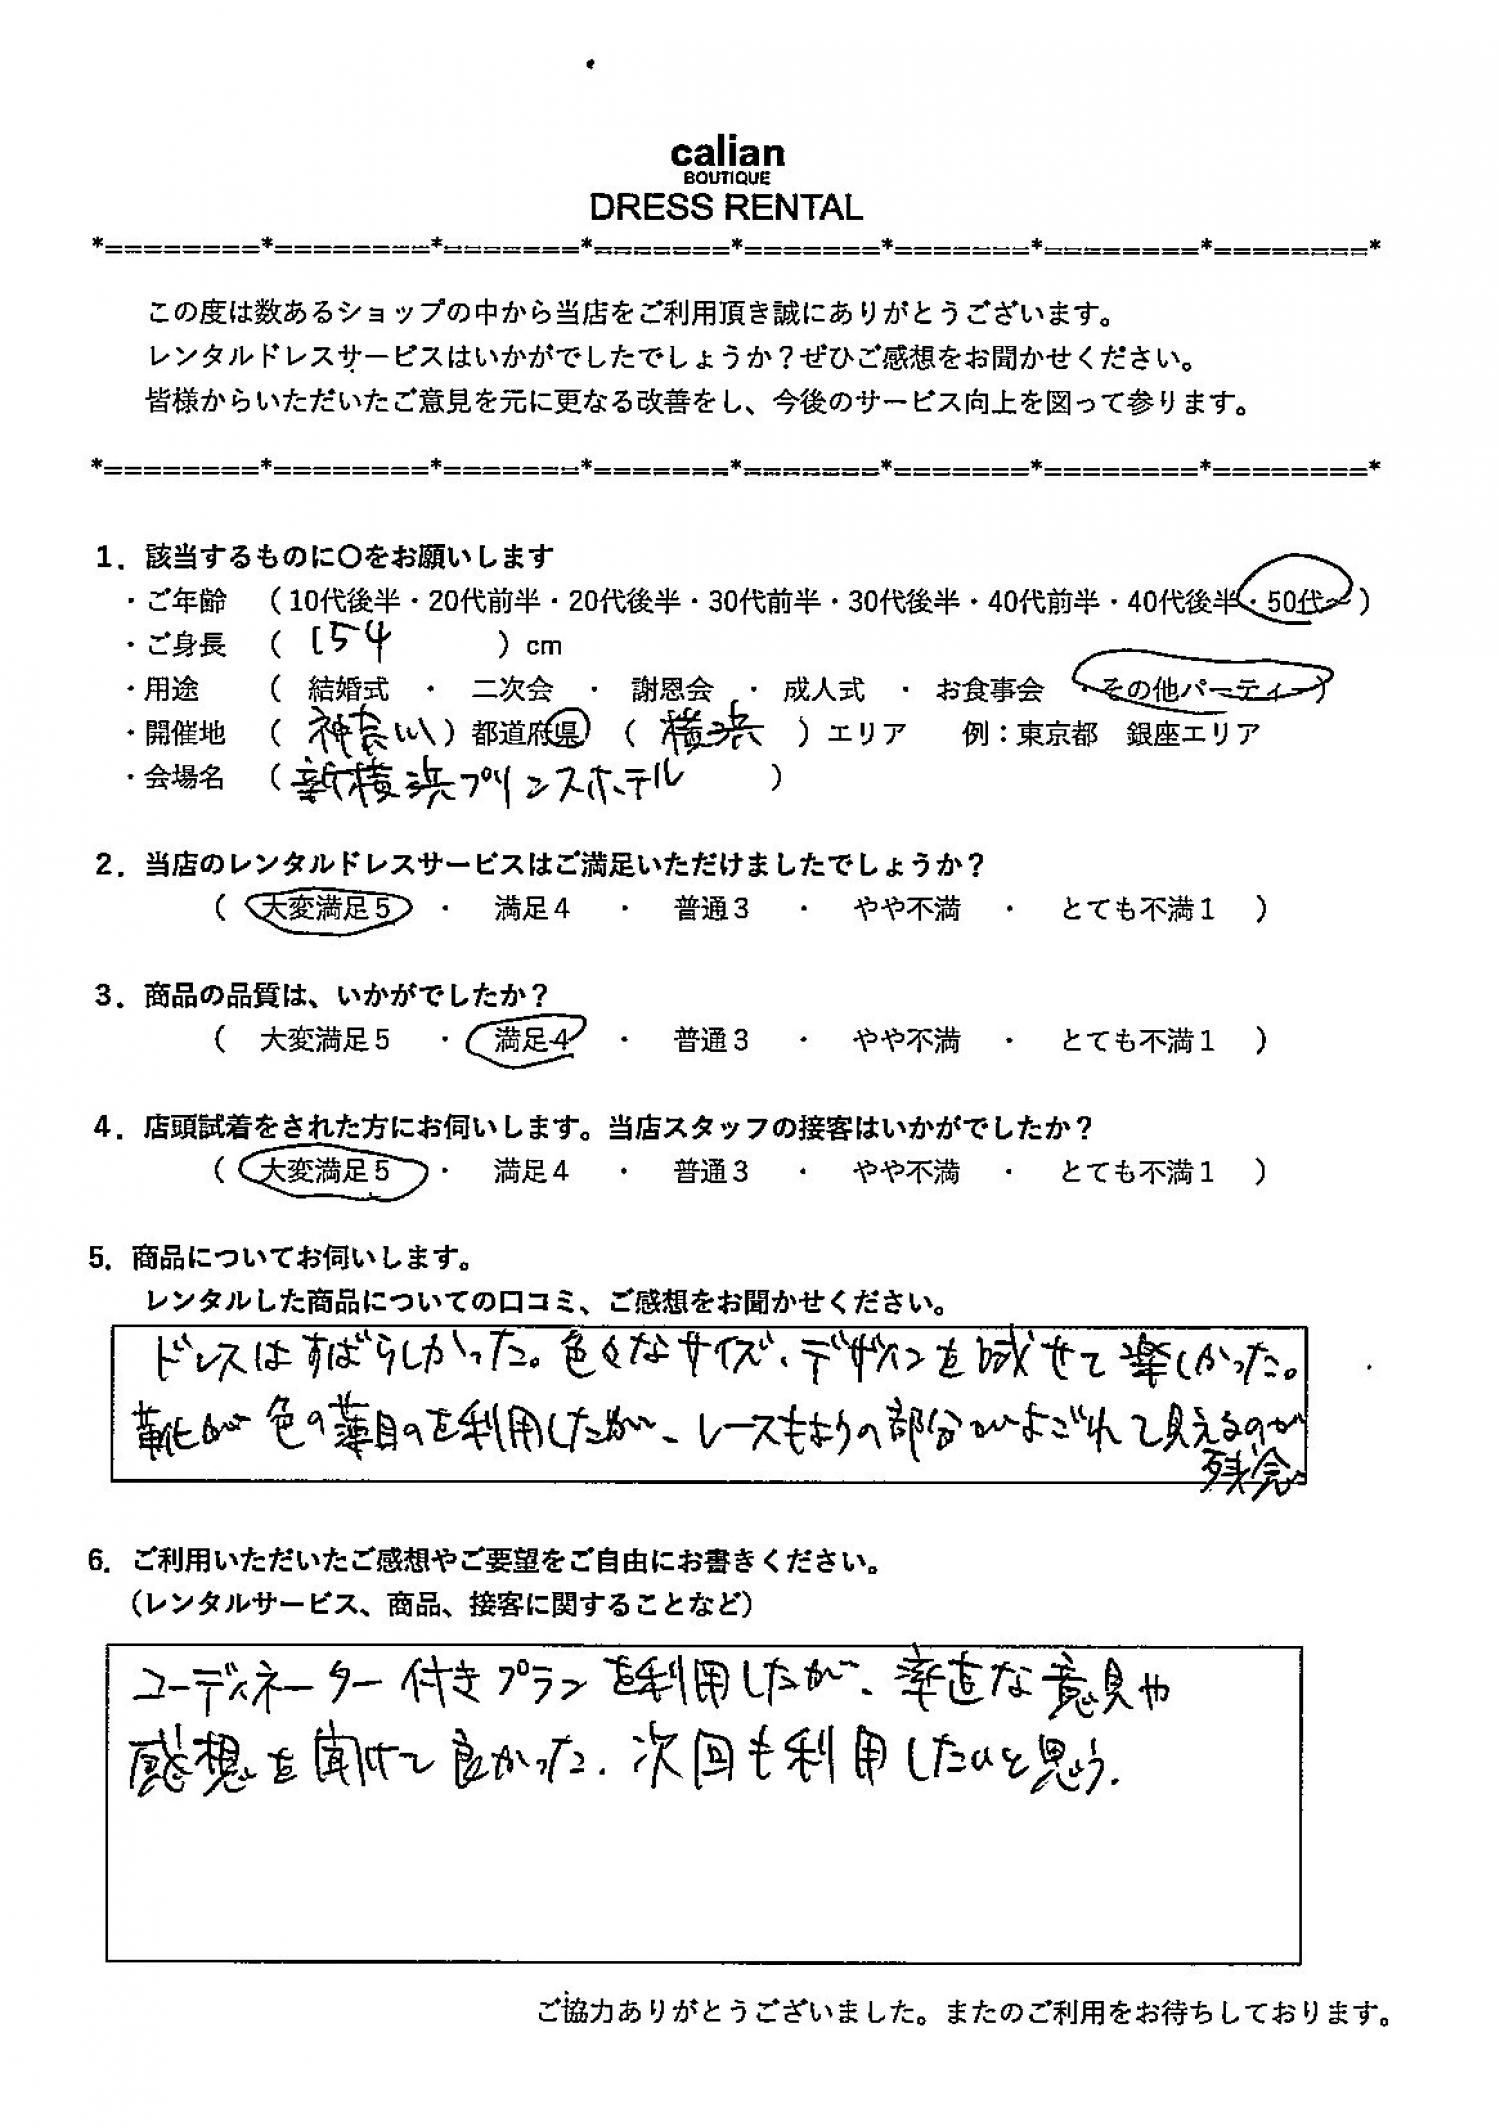 calian
BOUTIQUE
DRESS RENTAL
*========*========*=======*=======*=======*=======*========*========*
この度は数あるショップの中から当店をご利用頂き誠にありがとうございます。
レンタルドレスサービスはいかがでしたでしょうか?ぜひご感想をお聞かせください。
皆様からいただいたご意見を元に更なる改善をし、今後のサービス向上を図って参ります。
*========*========*=======*=======*=======*=======*========*========*
1．該当するものに〇をお願いします
・ご年齢 （10代後半・20代前半・20代後半・30代前半・30代後半・40代前半・40代後半・50代～）
・ご身長 （ 154 ）cm
・用途 （ 結婚式 ・ 二次会 ・ 謝恩会 ・ 成人式 ・ お食事会 ・その他パーティー）
・開催地 （ 神奈川 ）都道府県 （ 横浜 ）エリア 例：東京都 銀座エリア
・会場名 （ 新横浜プリンスホテル ）
2．当店のレンタルドレスサービスはご満足いただけましたでしょうか?
（ 大変満足5 ・ 満足4 ・ 普通3 ・ やや不満 ・ とても不満1 ）
3．商品の品質は、いかがでしたか?
（ 大変満足5 ・ 満足4 ・ 普通3 ・ やや不満 ・ とても不満1 ）
4．店頭試着をされた方にお伺いします。当店スタッフの接客はいかがでしたか?
（ 大変満足5 ・ 満足4 ・ 普通3 ・ やや不満 ・ とても不満1 ）
5．商品についてお伺いします。
レンタルした商品についての口コミ、ご感想をお聞かせください。
ドレスはすばらしかった。色々なサイズ、デザインを試せて楽しかった。
靴が色の薄目のを利用したが、レースもようの部分がよごれて見えるのが
残念。
6．ご利用いただいたご感想やご要望をご自由にお書きください。
（レンタルサービス、商品、接客に関することなど）
コーディネーター付きプランを利用したが、率直な意見や
感想を聞けて良かった。次回も利用したいと思う。
ご協力ありがとうございました。またのご利用をお待ちしております。